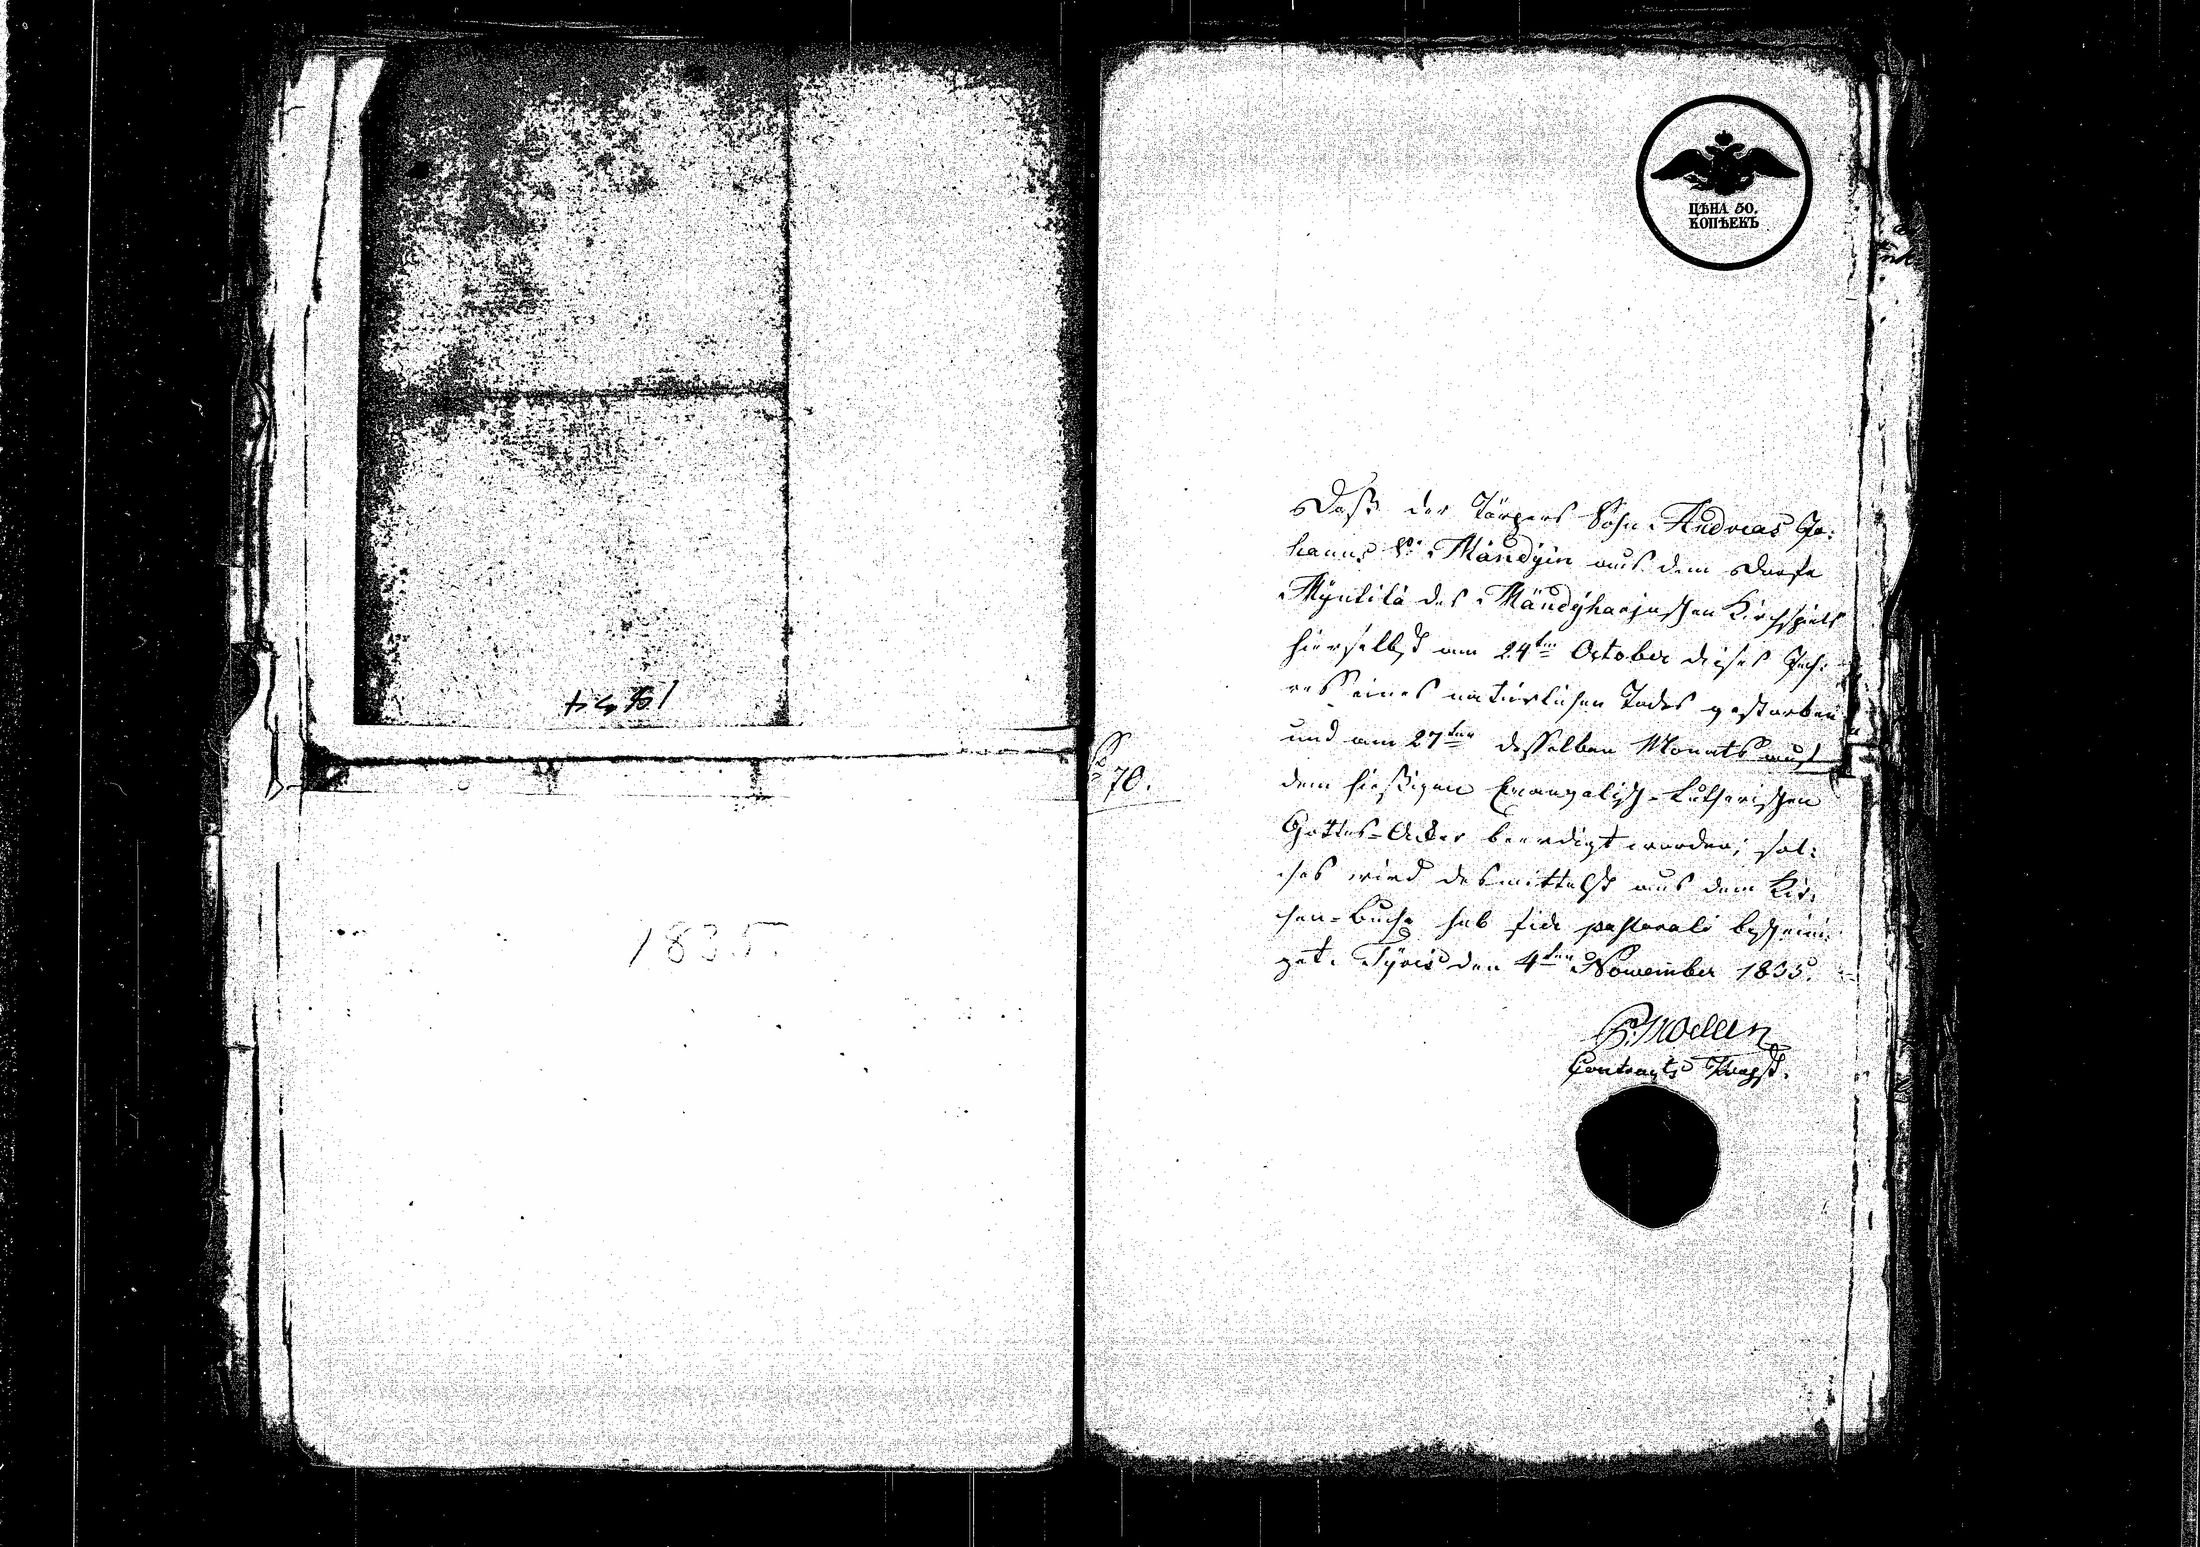 1835
ЦѢНА 50.
КОПѢЕКЪ
70.
Daß der Törpers Sohn Andreas Jo:
hanns S: Mändyin aus dem Dorfe
Myntilä des Mändyharjuschen Kirchspiels
hierselbst am 24ten October dieses Jah:
res eines natürlichen Todes gestorben
und am 27ten desselben Monats auf
dem hiesigen Evangelisch-Lutherischen
Gottes-Acker beerdigt worden; sol:
ches wird desmittelst aus dem Kir:
chen-Buche sub fide pastorali beschein:
get. Tyris den 4ten November 1835.
Contracts Propst.